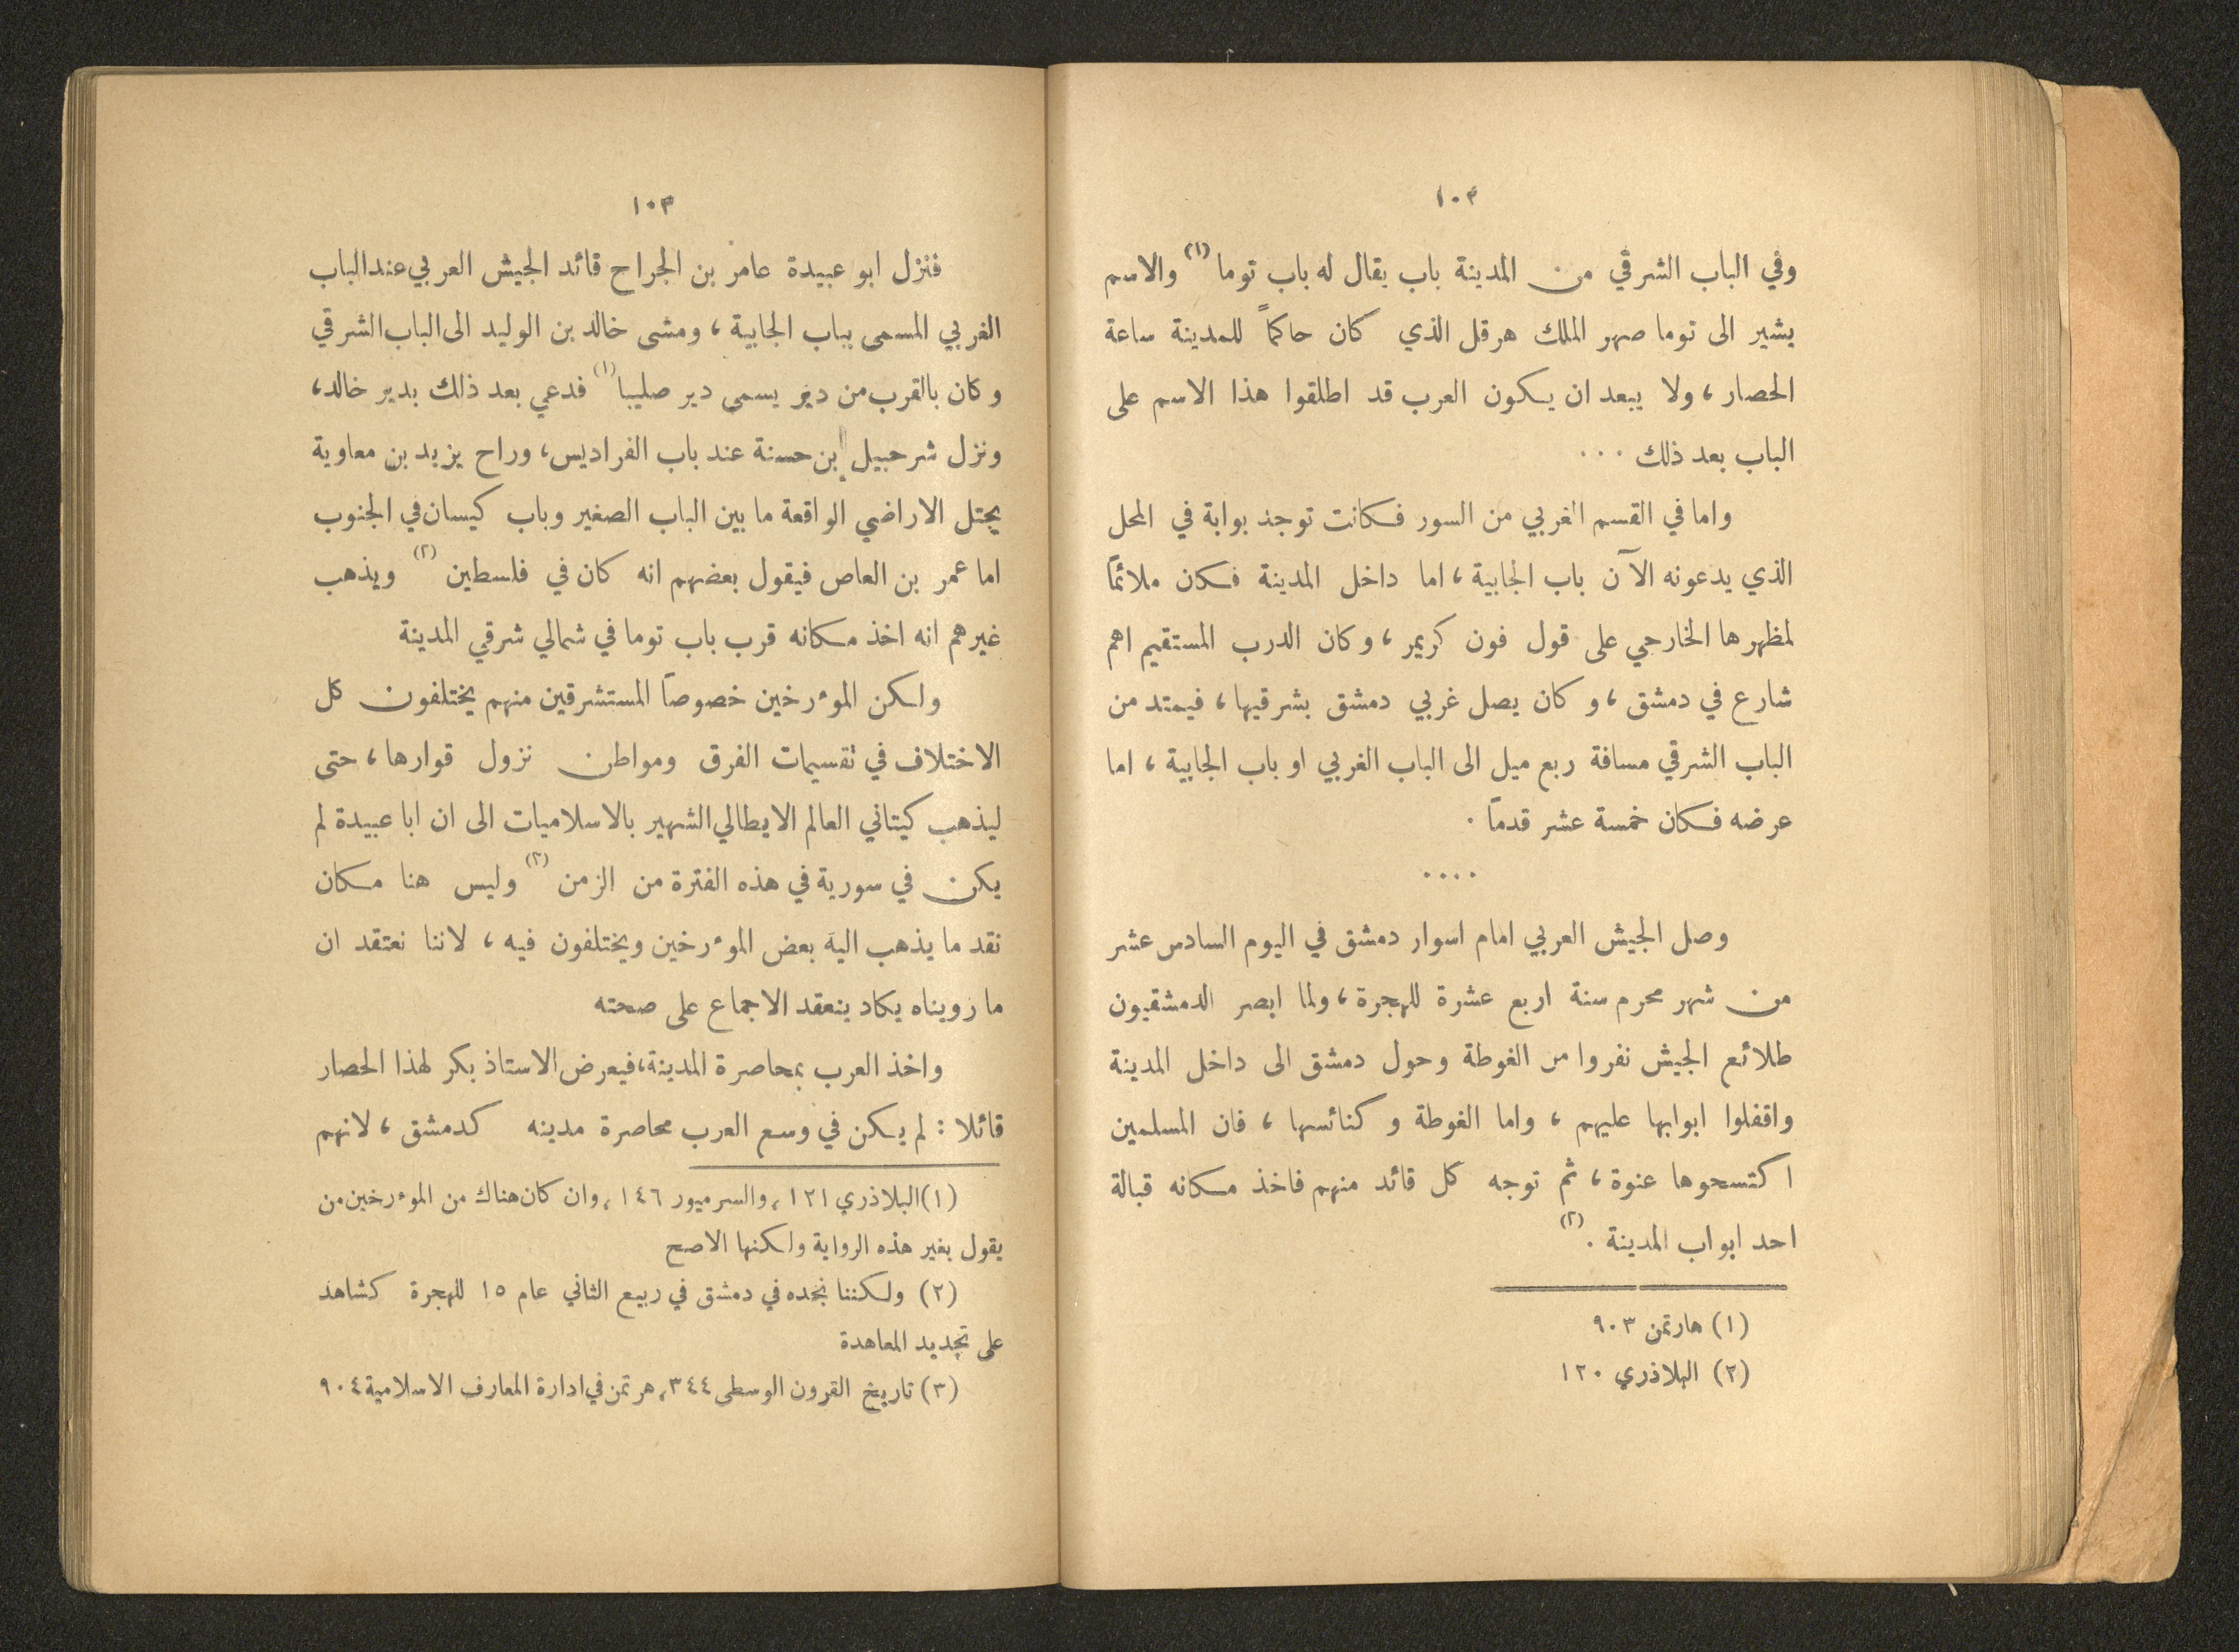 ١٠٢
وفي الباب الشرقي من المدينة باب يقال له باب توما (١) والاسم
يشير الى توما صهر الملك هرقل الذي كان حاكماً للمدينة ساعة
الحصار ، ولا يبعد ان يكون العرب قد اطلقوا هذا الاسم على
الباب بعد ذلك ...
واما في القسم الغربي من السور فكانت توجد بوابة في المحل
الذي يدعونه الآن باب الجابية ، اما داخل المدينة فكان ملائمًا
لمظهرها الخارجي على قول فون كريمر ، وكان الدرب المستقيم اهم
شارع في دمشق ، وكان يصل غربي دمشق بشرقيها ، فيمتد من
الباب الشرقي مسافة ربع ميل الى الباب الغربي او باب الجابية ، اما
عرضه فكان خمسة عشر قدمًا .
....
وصل الجيش العربي امام اسوار دمشق في اليوم السادس عشر
من شهر محرم سنة اربع عشرة للهجرة ، ولما ابصر الدمشقيون
طلائع الجيش نفروا من الغوطة وحول دمشق الى داخل المدينة
واقفلوا ابوابها عليهم ، واما الغوطة وكنائسها ، فان المسلمين
اكتسحوها عنوة ، ثم توجه كل قائد منهم فاخذ مكانه قبالة
احد ابواب المدينة . (٢)
(١) هارتمن ٩٠٣
(٢) البلاذري ١٢٠
١٠٣
فنزل ابو عبيدة عامر بن الجراح قائد الجيش العربي عند الباب
الغربي المسمى بباب الجابية ، ومشى خالد بن الوليد الى الباب الشرقي
وكان بالقرب من دير يسمى دير صليبا (١) فدعي بعد ذلك بدير خالد ،
ونزل شرحبيل ابن حسنة عند باب الفراديس ، وراح يزيد بن معاوية
يحتل الاراضي الواقعة ما بين الباب الصغير وباب كيسان في الجنوب
اما عمر بن العاص فيقول بعضهم انه كان في فلسطين (٢) ويذهب
غيرهم انه اخذ مكانه قرب باب توما في شمالي شرقي المدينة
ولكن المؤرخين خصوصًا المستشرقين منهم يختلفون كل
الاختلاف في تقسيمات الفرق ومواطن نزول قوارها ، حتى
ليذهب كيتاني العالم الايطالي الشهير بالاسلاميات الى ان ابا عبيدة لم
يكن في سورية في هذه الفترة من الزمن (٣) وليس هنا مكان
نقد ما يذهب اليه بعض المؤرخين ويختلفون فيه ، لاننا نعتقد ان
ما رويناه يكاد ينعقد الاجماع على صحته
واخذ العرب بمحاصرة المدينة ، فيعرض الاستاذ بكر لهذا الحصار
قائلا : لم يكن في وسع العرب محاصرة مدينه كدمشق ، لانهم
(١) البلاذري ١٢١ ، والسر ميور ١٤٦ ، وان كان هناك من المؤرخين من
يقول بغير هذه الرواية ولكنها الاصح
(٢) ولكننا نجده في دمشق في ربيع الثاني عام ١٥ للهجرة كشاهد
على تجديد المعاهدة
(٣) تاريخ القرون الوسطى ٣٤٤ ، هرتمن في ادارة المعارف الاسلامية ٩٠٤